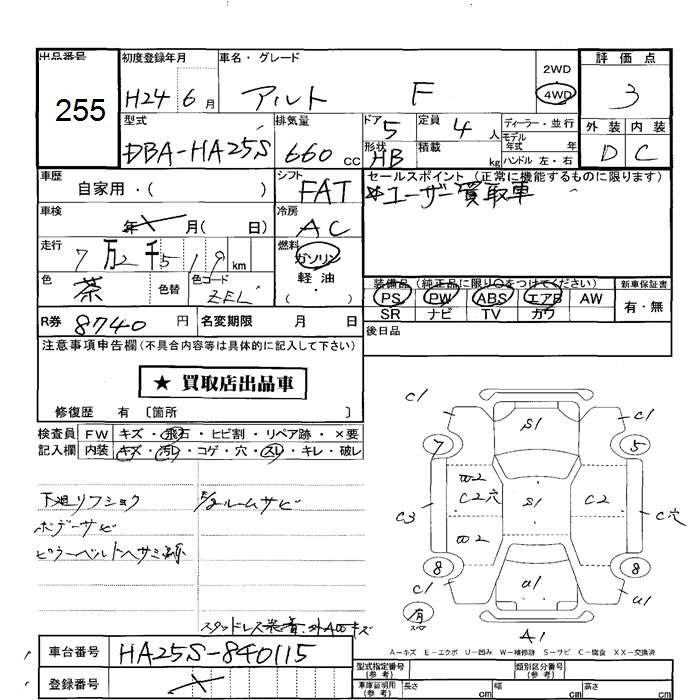 出品番号 初度登録年月 車名・グレード 2WD 評価点
255 H24 6月 アルト F 4WD 3
型式 排気量 ドア 5 定員 4人 ディーラー・並行 外装 内装
DBA-HA25S 660cc 形状 HB 積載 kg モデル年式 年 ハンドル 左・右 D C
車歴 自家用・( ) シフト FAT セールスポイント (正常に機能するものに限ります)
車検 年 月( 日) 冷房 AC ※ユーザー買取車
走行 7万2千519km 燃料 ガソリン
色 茶 色替 色コード ZEL 軽油 ( ・ )
装備品 (純正品に限り○をつけてください) 新車保証書
PS PW ABS エアB AW 有・無
R券 8740円 名変期限 月 日 SR ナビ TV カワ
後日品
注意事項申告欄(不具合内容等は具体的に記入して下さい)
★ 買取店出品車
修復歴 有 〔箇所 〕
検査員 FW キズ・飛石・ヒビ割・リペア跡・×要
記入欄 内装 キズ・汚レ・コゲ・穴・スレ・キレ・破レ
下廻リフショク
ルームサビ
ボデーサビ
スタッドレス装着
C1 S1 C1
7 5
W2
C2穴 S1 C2
C3 C穴
W2
8 8
C1 U1 U1
有
スペア
A1
A-キズ E-エクボ U-凹み W-補修跡 S-サビ C-腐食 XX-交換済
車台番号 HA25S-840115
登録番号
型式指定番号(参考) 類別区分番号(参考)
車庫証明用(参考) 長さ cm 幅 cm 高さ cm